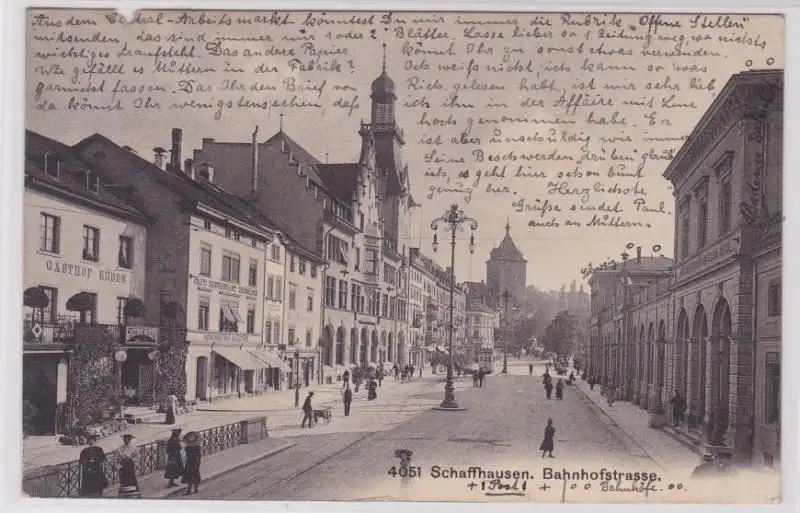 Aus dem Central-Arbeitsmarkt könntest Du mir immer die Rubrik "Offene Stellen"
mitsenden, das sind immer nur 1 oder 2 Blätter. Lasse lieber so 1 Zeitung weg, wo nichts
wichtiges draufsteht. Das andere Papier
könnt Ihr zu sonst etwas verwenden.
Wie gefällt es Müttern in der Fabrik?
Ich weiß nicht, ich kann so was
garnicht fassen. Das Ihr den Brief von
Rich. gelesen habt, ist mir sehr lieb
da könnt Ihr wenigstens sehen, daß
ich ihn in der Affäire mit Lene
hoch genommen habe. Er
ist aber unschuldig wie immer
Seine Beschwerden "drüben" glaub
ich, es geht hier schon bunt
genug her. Herzlichste
Grüße sendet Paul.
auch an Müttern.
GASTHOF RÜDEN
CAFÉ RESTAURANT
Badener Bahnhof
4051 Schaffhausen. Bahnhofstrasse.
+ 1 Post 1 + o o Bahnhöfe. o o